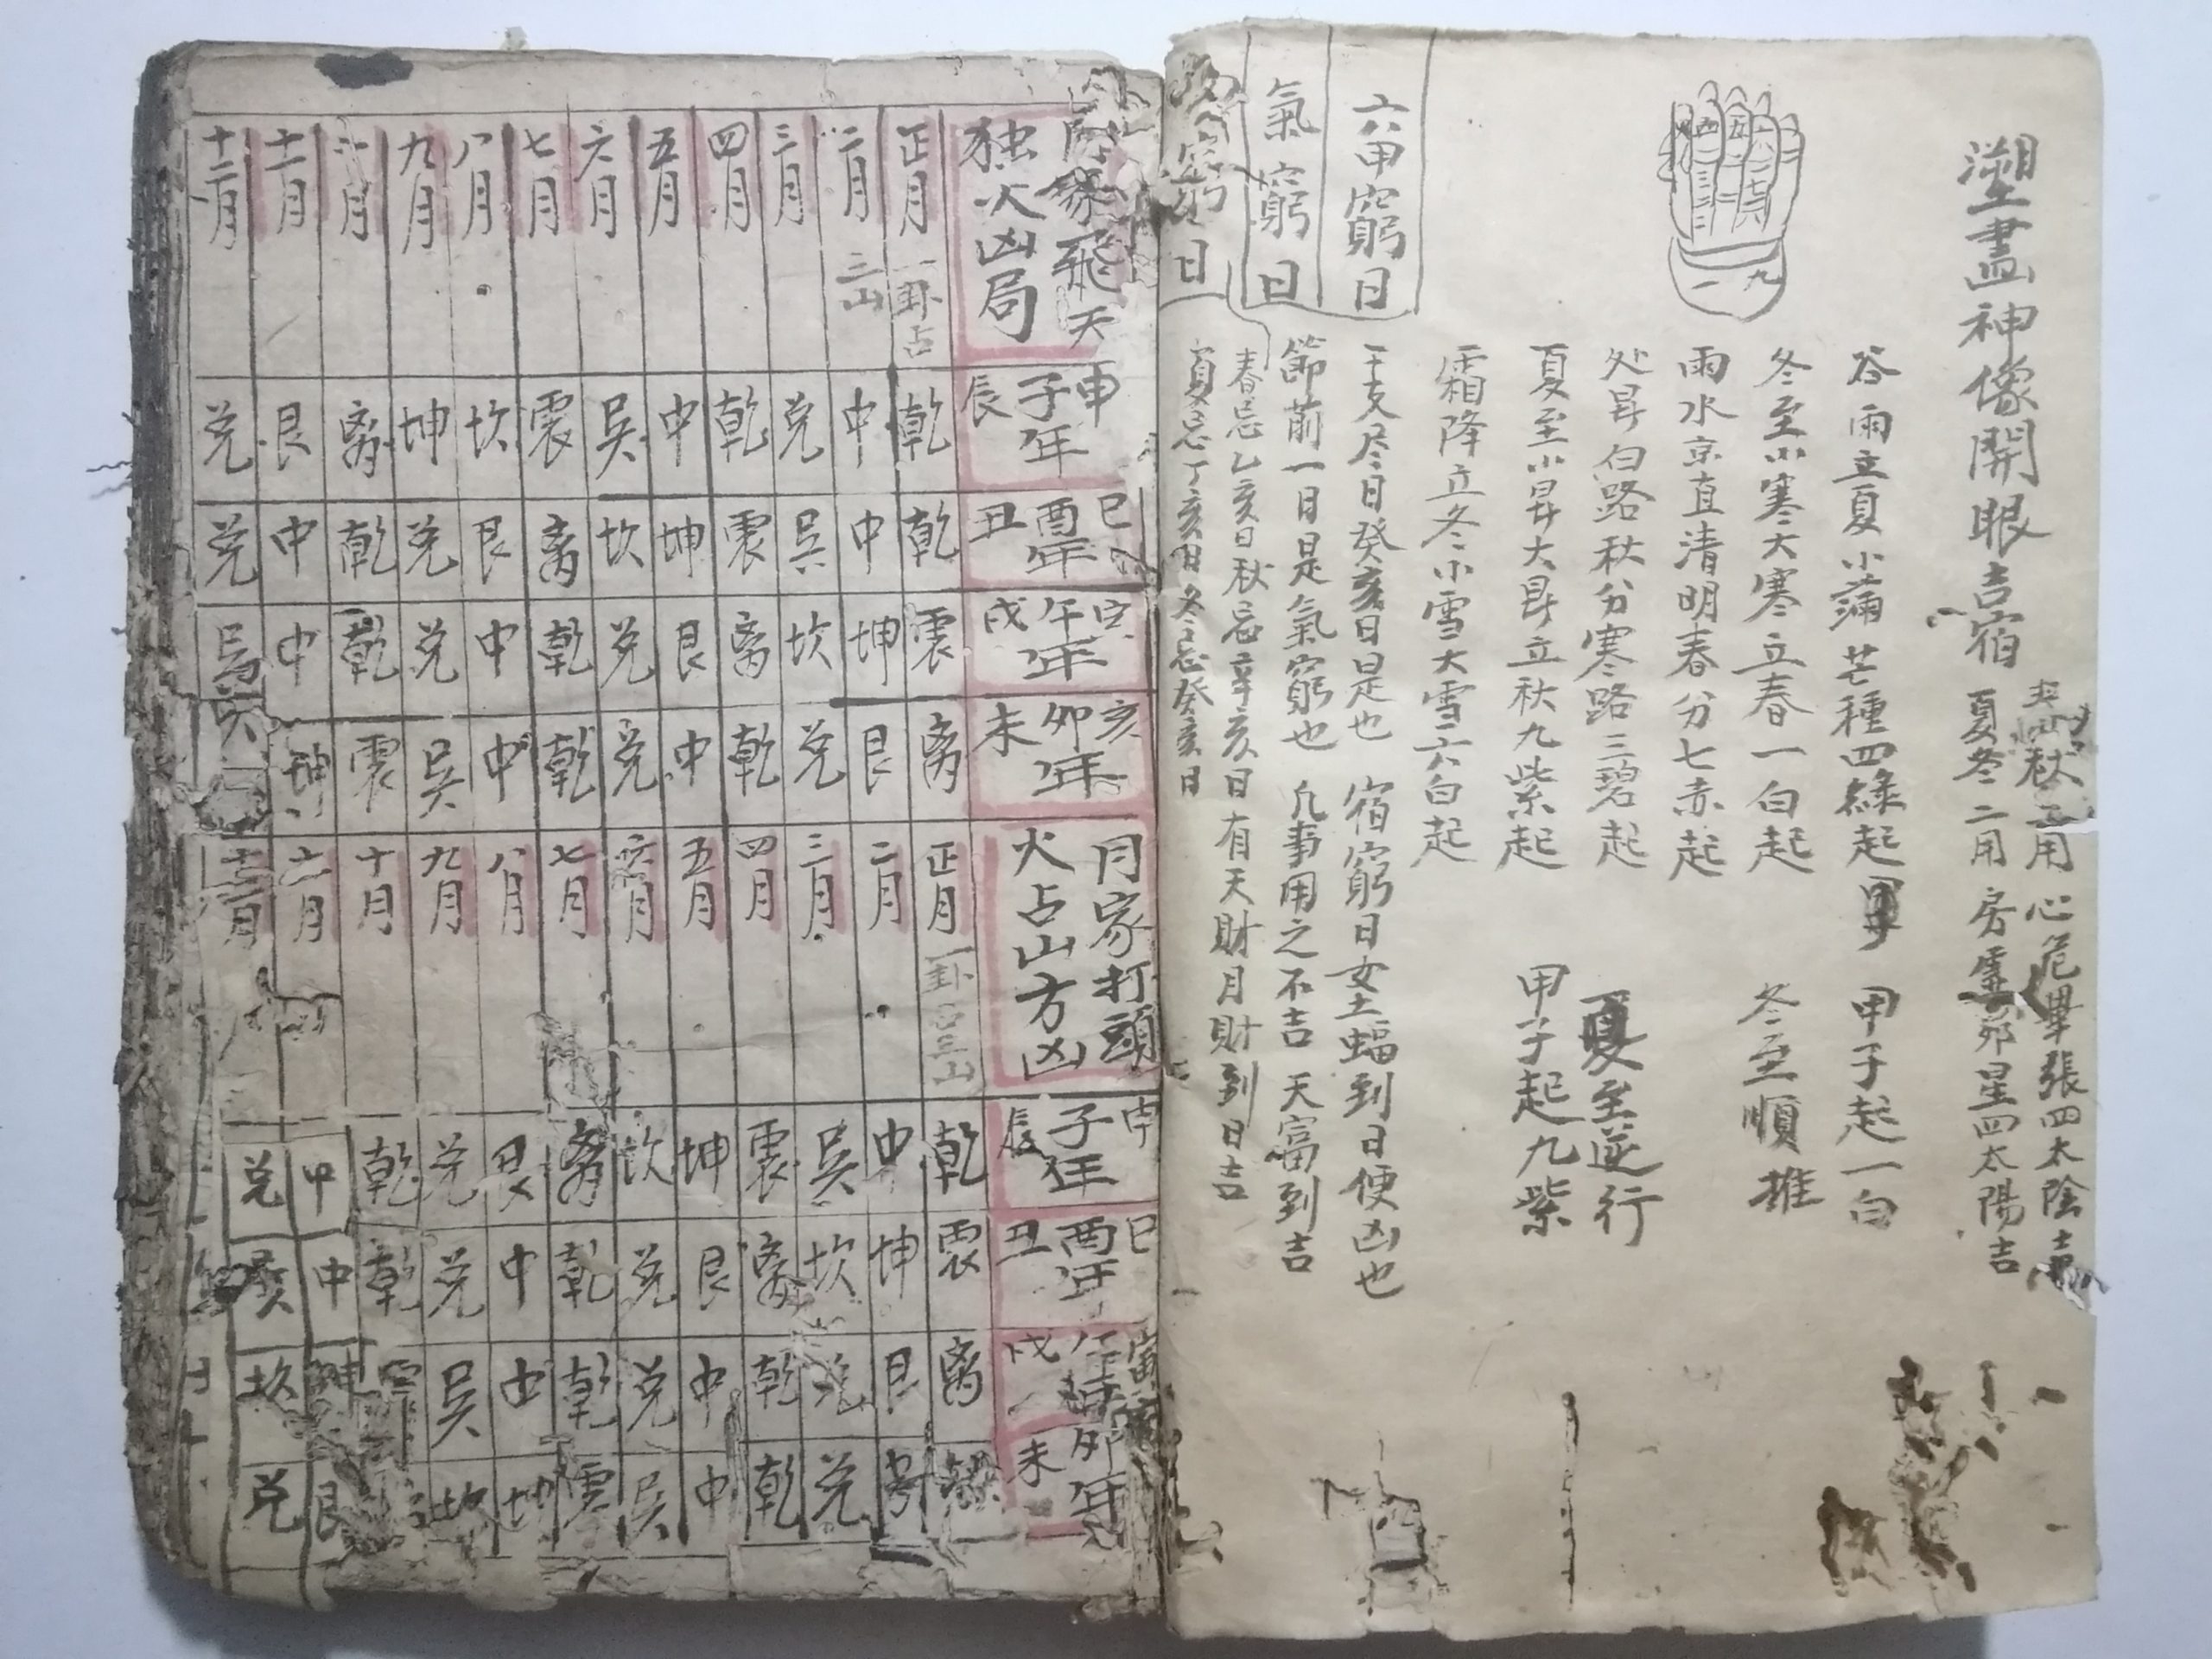 塑畫神像開眼吉宿
秋二用 心危畢張四太陰吉
夏冬二用 房虛昴星四太陽吉
九
一
谷雨立夏小滿芒種四綠起 甲子起一白
冬至小寒大寒立春一白起 冬至順推
雨水京直清明春分七赤起
处暑白路秋分寒路三碧起 夏至逆行
夏至小暑大暑立秋九紫起 甲子起九紫
霜降立冬小雪大雪六白起
六甲窮日
干支尽日癸亥日是也 宿窮日女土蝠到日便凶也
氣窮日
節前一日是氣窮也 凡事用之不吉 天富到吉
窮日
春忌乙亥日秋忌辛亥日有天財月財到日吉
夏忌丁亥日冬忌癸亥日
家飛天
独火凶局
申子年辰
巳酉年丑
午年戌
亥卯年未
正月 一卦占 乾 乾 震 离
二月 三山 中 中 坤 艮
三月 兑 吴 坎 兑
四月 乾 震 离 乾
五月 中 坤 艮 中
六月 吴 坎 兑 兑
七月 震 离 乾 乾
八月 坎 艮 中 中
九月 坤 兑 兑 吴
十月 离 乾 乾 震
十一月 艮 中 中 坤
十二月 兑 兑 吴
月家打頭
火占山方凶
申子年辰
巳酉年丑
戌
卯年未
正月 一卦占三山 乾 震 离
二月 中 坤 艮
三月 吴 坎 兑 兑
四月 震 离 乾 乾
五月 坤 艮 中 中
六月 坎 兑 兑 吴
七月 离 乾 乾 震
八月 艮 中 中 坤
九月 兑 兑 吴 坎
十月 乾 乾 震
十一月 中 中 坤 艮
十二月 兑 吴 坎 兑